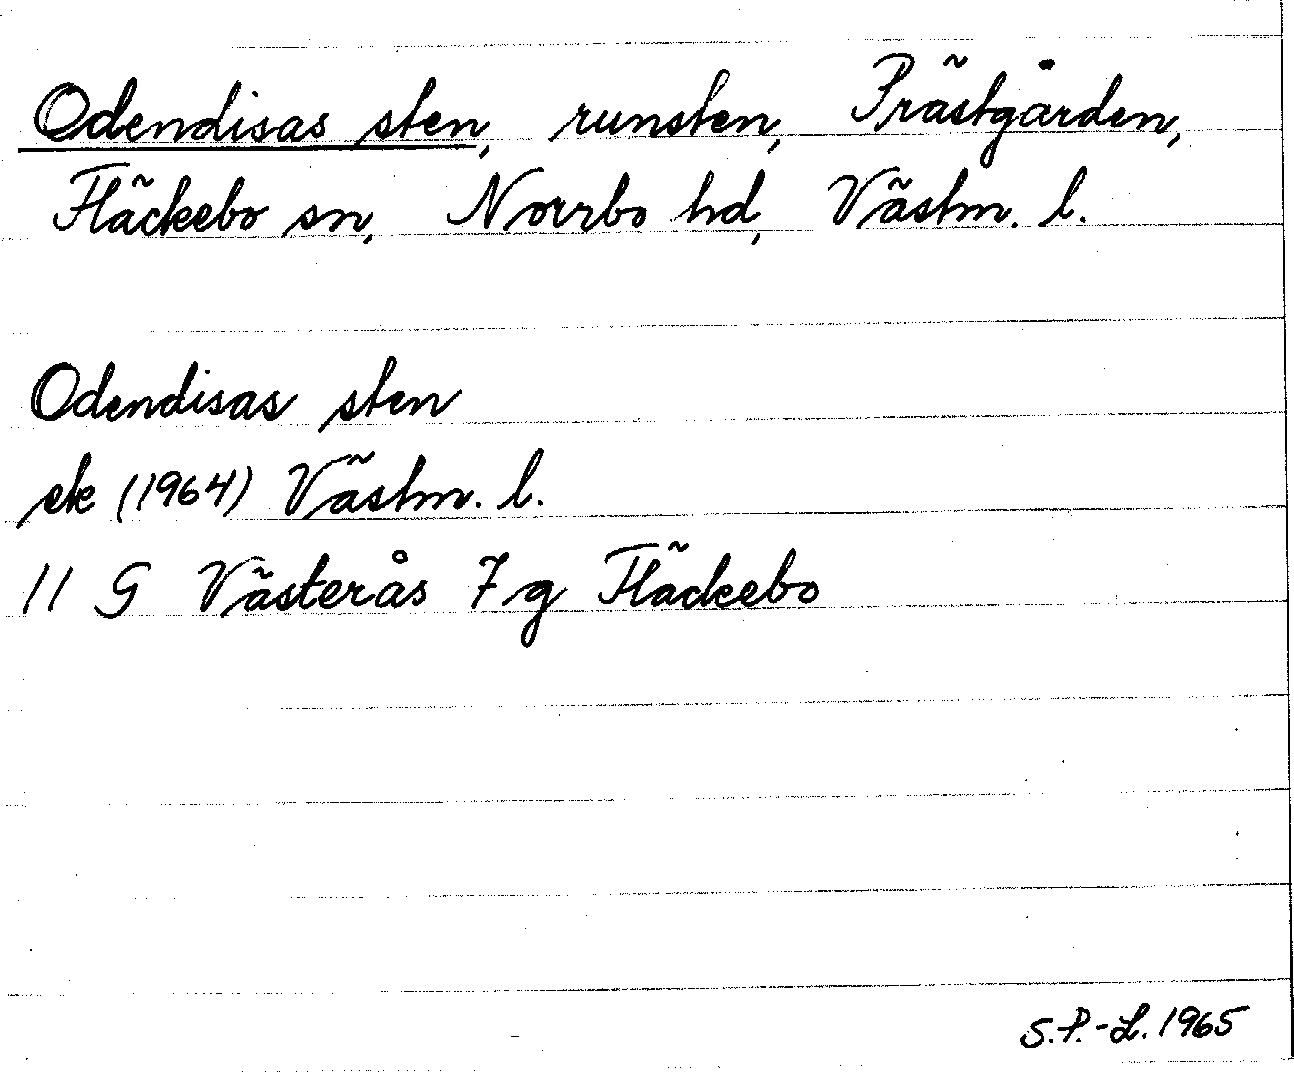 Odendisas sten, runsten, Prästgården,
Fläckebo sn, Norrbo hd, Västm. l.
Odendisas sten
ek (1964) Västm. l.
11 G Västerås 7g Fläckebo
S.P.-L. 1965